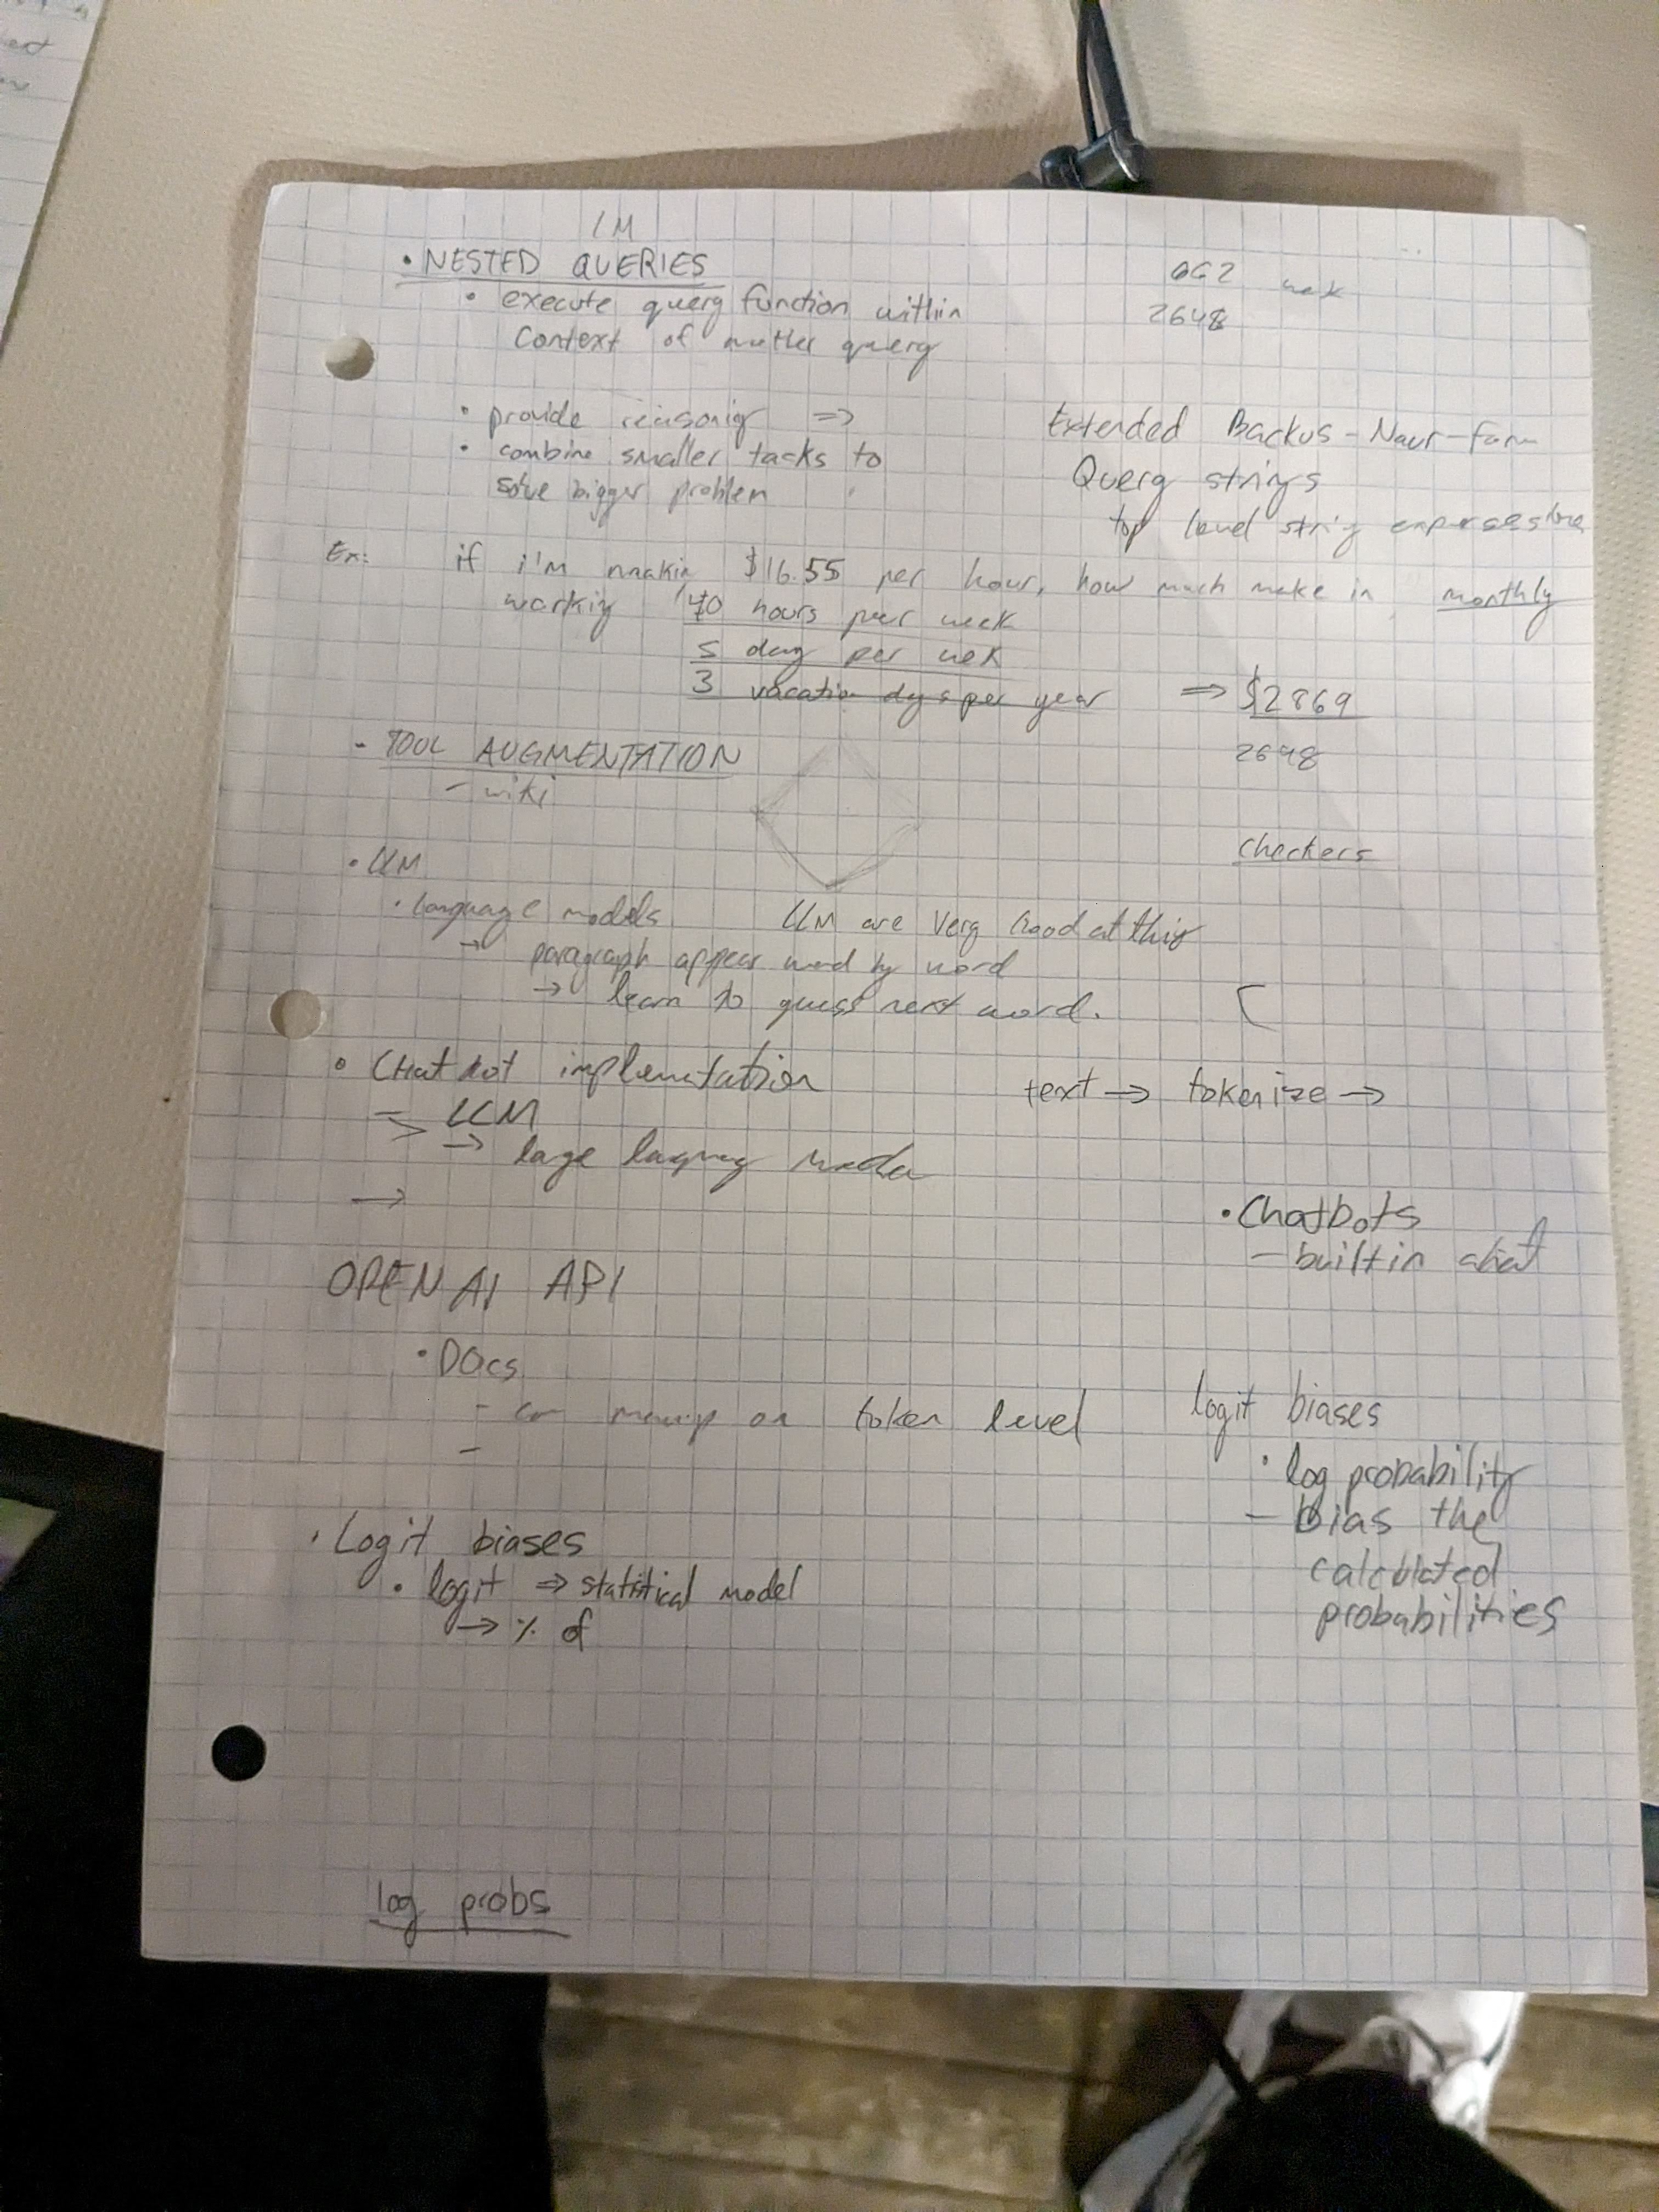 LM
• NESTED QUERIES
• execute query function within
context of another query
662 wek
2648
• provide reasoning ⇒
• combine smaller tasks to
solve bigger problem
Extended Backus-Naur-Form
Query strings
top level string
Ex: if i'm making $16.55 per hour, how much make in monthly
working 40 hours per week
5 day per wek
3 vacation days per year ⇒ $2869
2648
- TOOL AUGMENTATION
- wiki
checkers
• LLM
• Language models LLM are very Good at this
→ paragraph appear word by word
→ learn to guess next word.
• Chat bot
→ LLM
→ large
→
text → tokenize →
• Chatbots
- built in chat
OPEN AI API
• DOcs
- on token level
-
logit biases
• log probability
- bias the
calculated
probabilities
• Logit biases
• logit ⇒ statistical model
→ % of
log probs